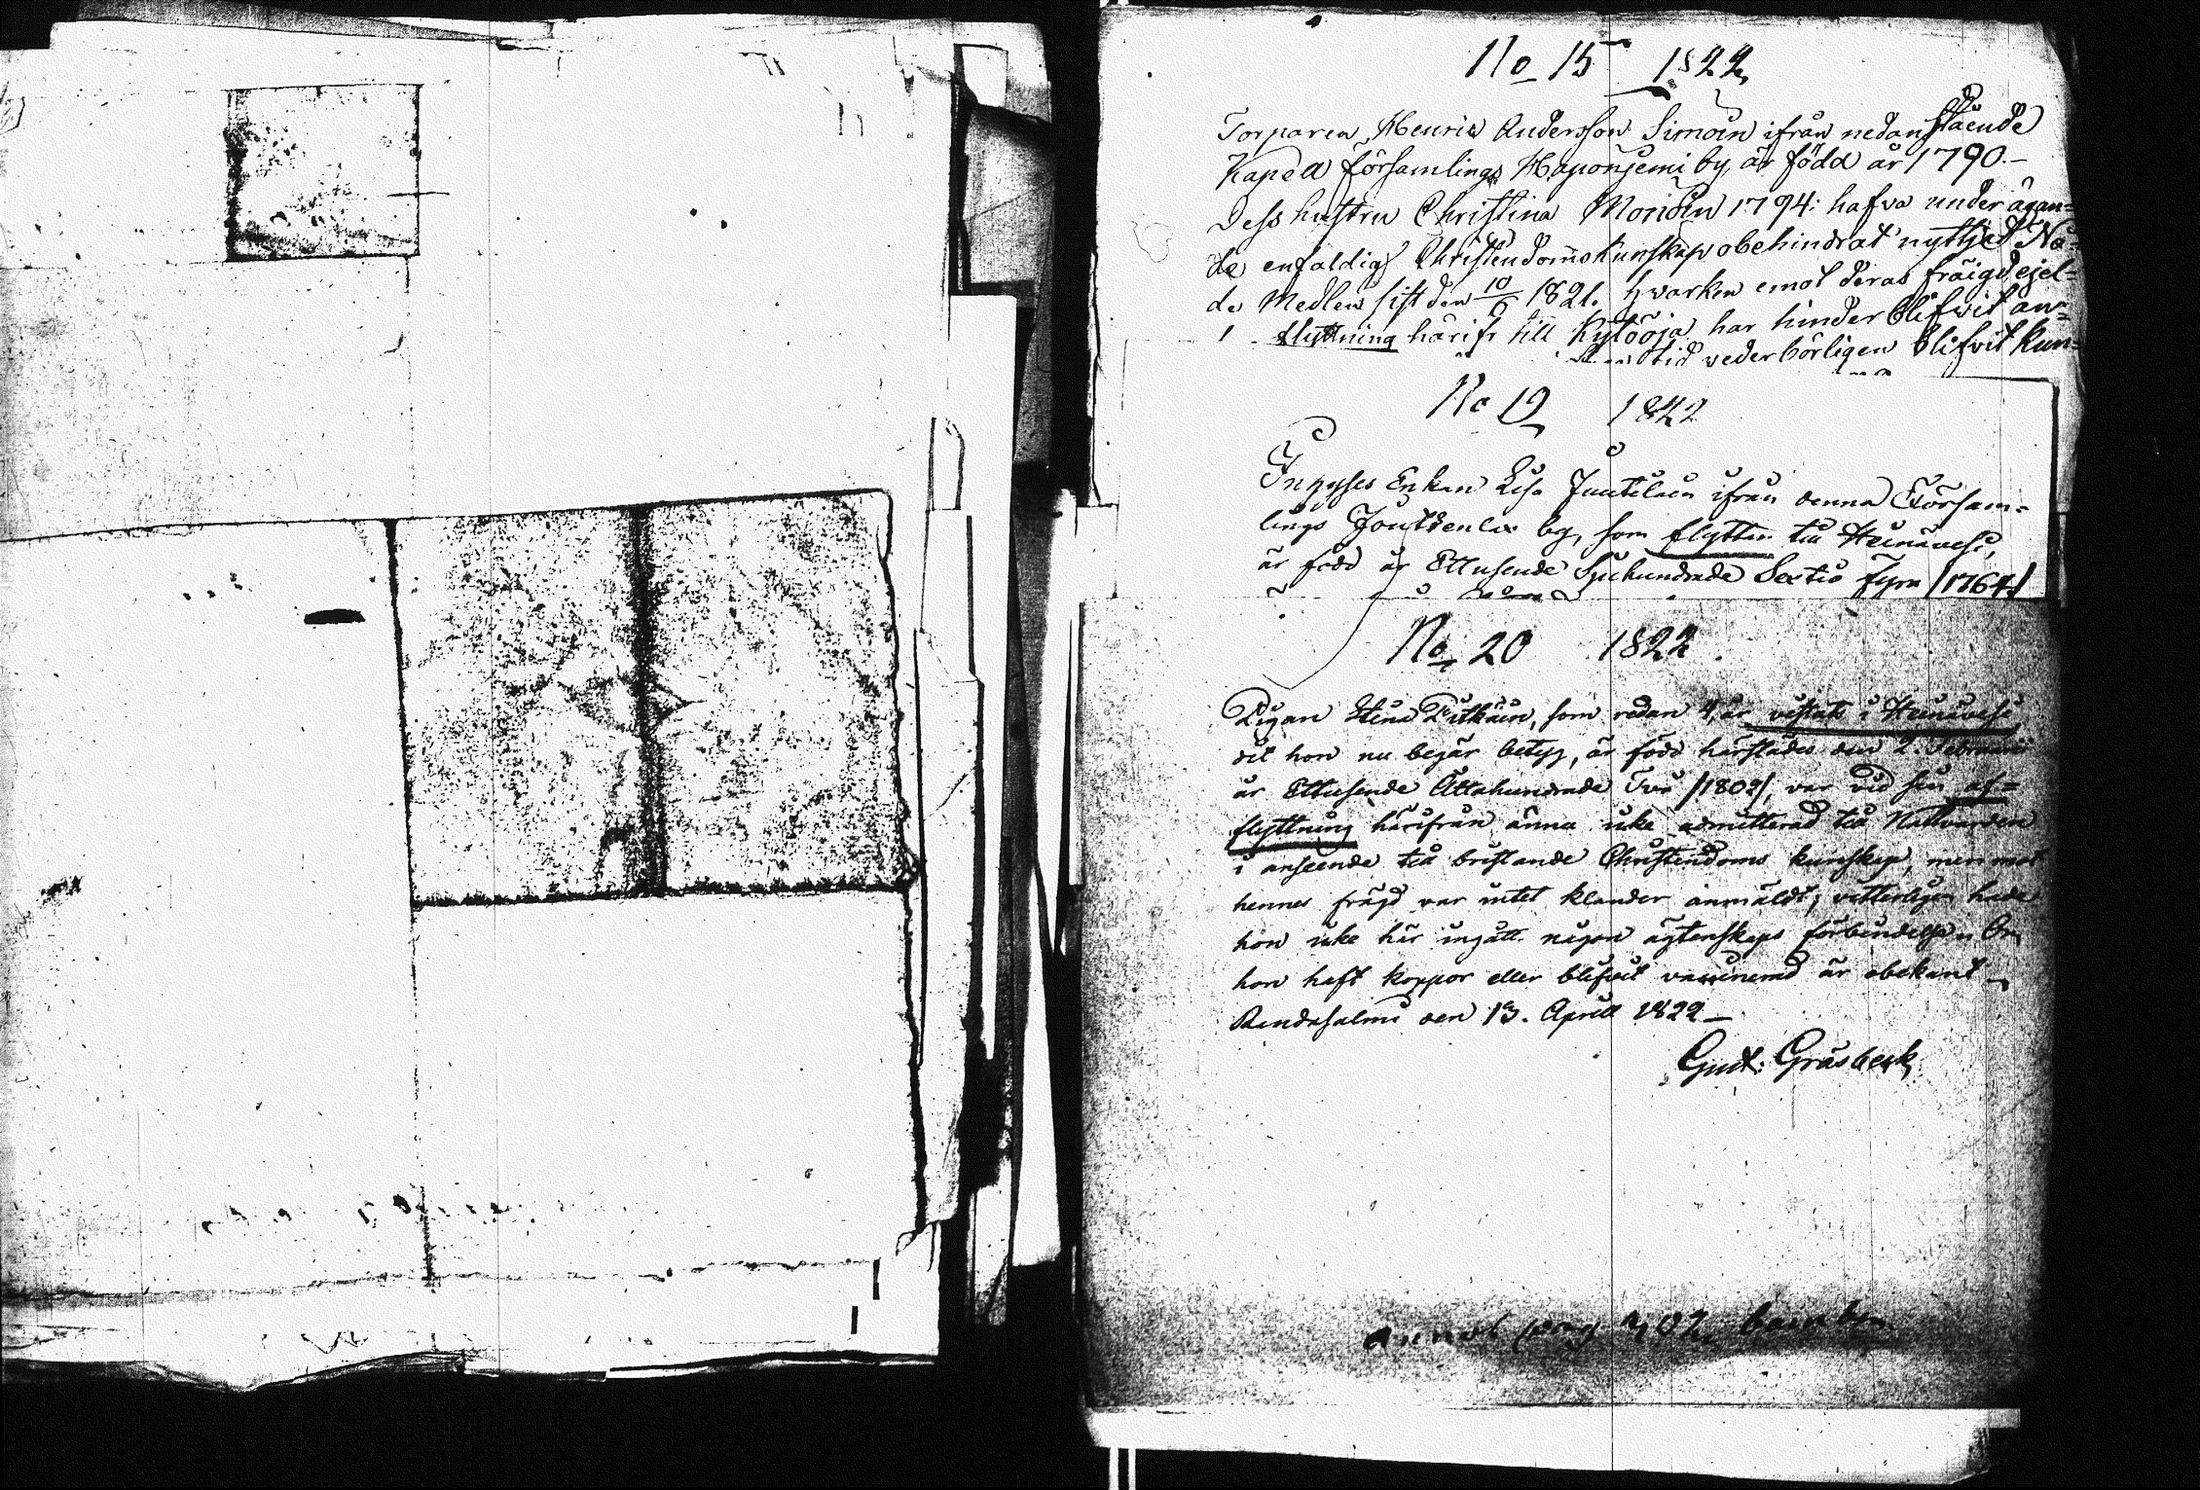 No 15 1822
Torparen Henric Andersson Simoin ifrån nedanstående
Kapell församlings Haponjemi by, är född år 1790.-
Dess hustru Christina Monoin 1794: hafva under ägan=
de enfaldig Christendomskunskap obehindrat nyttjat Na-
de Medlen sist den 10/6 1821. hvarken emot deras fräigd ejel=
flyttning härifr till Kylöoja har hinder blifwit an=
tid vederbörligen blifvit kun=
No 19 1822
Inhyses Enkan Lisa Juutilain ifrån denna Försam=
lings Joutsenlax by, som flyttar till Heinävesi,
är född år Ettusende Sjuhundrade Sextio fyra /1764/
No 20 1822
Pigan Stina Pitkäin, som redan 4 år vistats i Heinävesi
dit hon nu begär betyg, är född härstädes den 2. Februarii
år Ettusende Åttahundrade Två /1802/, var vid sin af=
flyttning härifrån änna icke admitterad till Nattvarden
i anseende till bristande Christendoms kunskap, men mot
hennes frägd var intet klander anmäldt; vitterligen hade
hon icke här ingått någon ägtenskaps förbindelse. Om
hon haft koppor eller blifvit vaccinerad är obekant
Randasalmi den 13. Aprill 1822 —
Gust: Gråsbeck
Annot pag 702